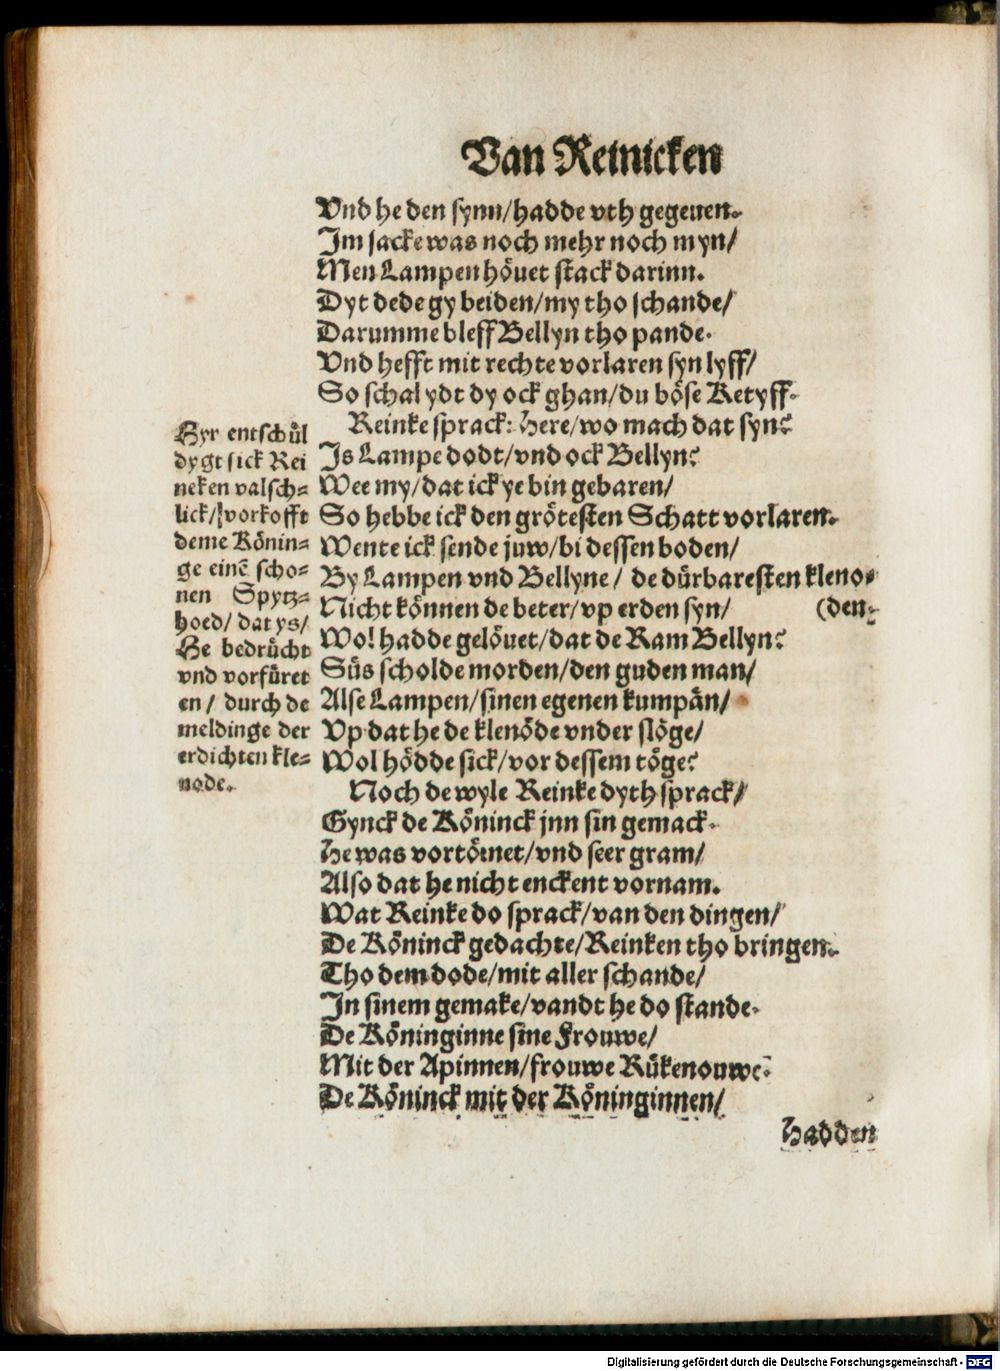 Van Reinicken
Vnd he den synn/hadde vth gegeuen.
Im sacke was noch mehr noch myn/
Men Lampen höuet stack darinn.
Dyt dede gy beiden/my tho schande/
Darumme bleff Bellyn tho pande.
Vnd hefft mit rechte vorlaren syn lyff/
So schal ydt dy ock ghan/du böse Ketyff.
Reinke sprack: Here/wo mach dat syn?
Is Lampe dodt/vnd ock Bellyn?
Wee my/dat ick ye bin gebaren/
So hebbe ick den grötesten Schatt vorlaren.
Wente ick sende juw/bi dessen boden/
By Lampen vnd Bellyne/ de dürbaresten kleno-
Nicht können de beter/vp erden syn/ (den.
Wol hadde gelöuet/dat de Ram Bellyn?
Süs scholde morden/den guden man/
Alse Lampen/sinen egenen kumpân/
Vp dat he de klenöde vnder slöge/
Wol hödde sick/vor dessem töge?
Noch de wyle Reinke dyth sprack/
Gynck de Köninck jnn sin gemack.
He was vortörnet/vnd seer gram/
Also dat he nicht enckent vornam.
Wat Reinke do sprack/van den dingen/
De Köninck gedachte/Reinken tho bringen.
Tho dem dode/mit aller schande/
In sinem gemake/vandt he do stande.
De Köninginne sine Frouwe/
Mit der Apinnen/frouwe Rükenouwe.
De Köninck mit der Köninginnen/
Hadden
Hyr entschül
dygt sick Rei
neken valsch-
lick/vorkofft
deme Könin-
ge einē scho-
nen Spytz-
hoed/ dat ys/
He bedrücht
vnd vorfüret
en/ durch de
meldinge der
erdichten kle-
node.
Digitalisierung gefördert durch die Deutsche Forschungsgemeinschaft - DFG